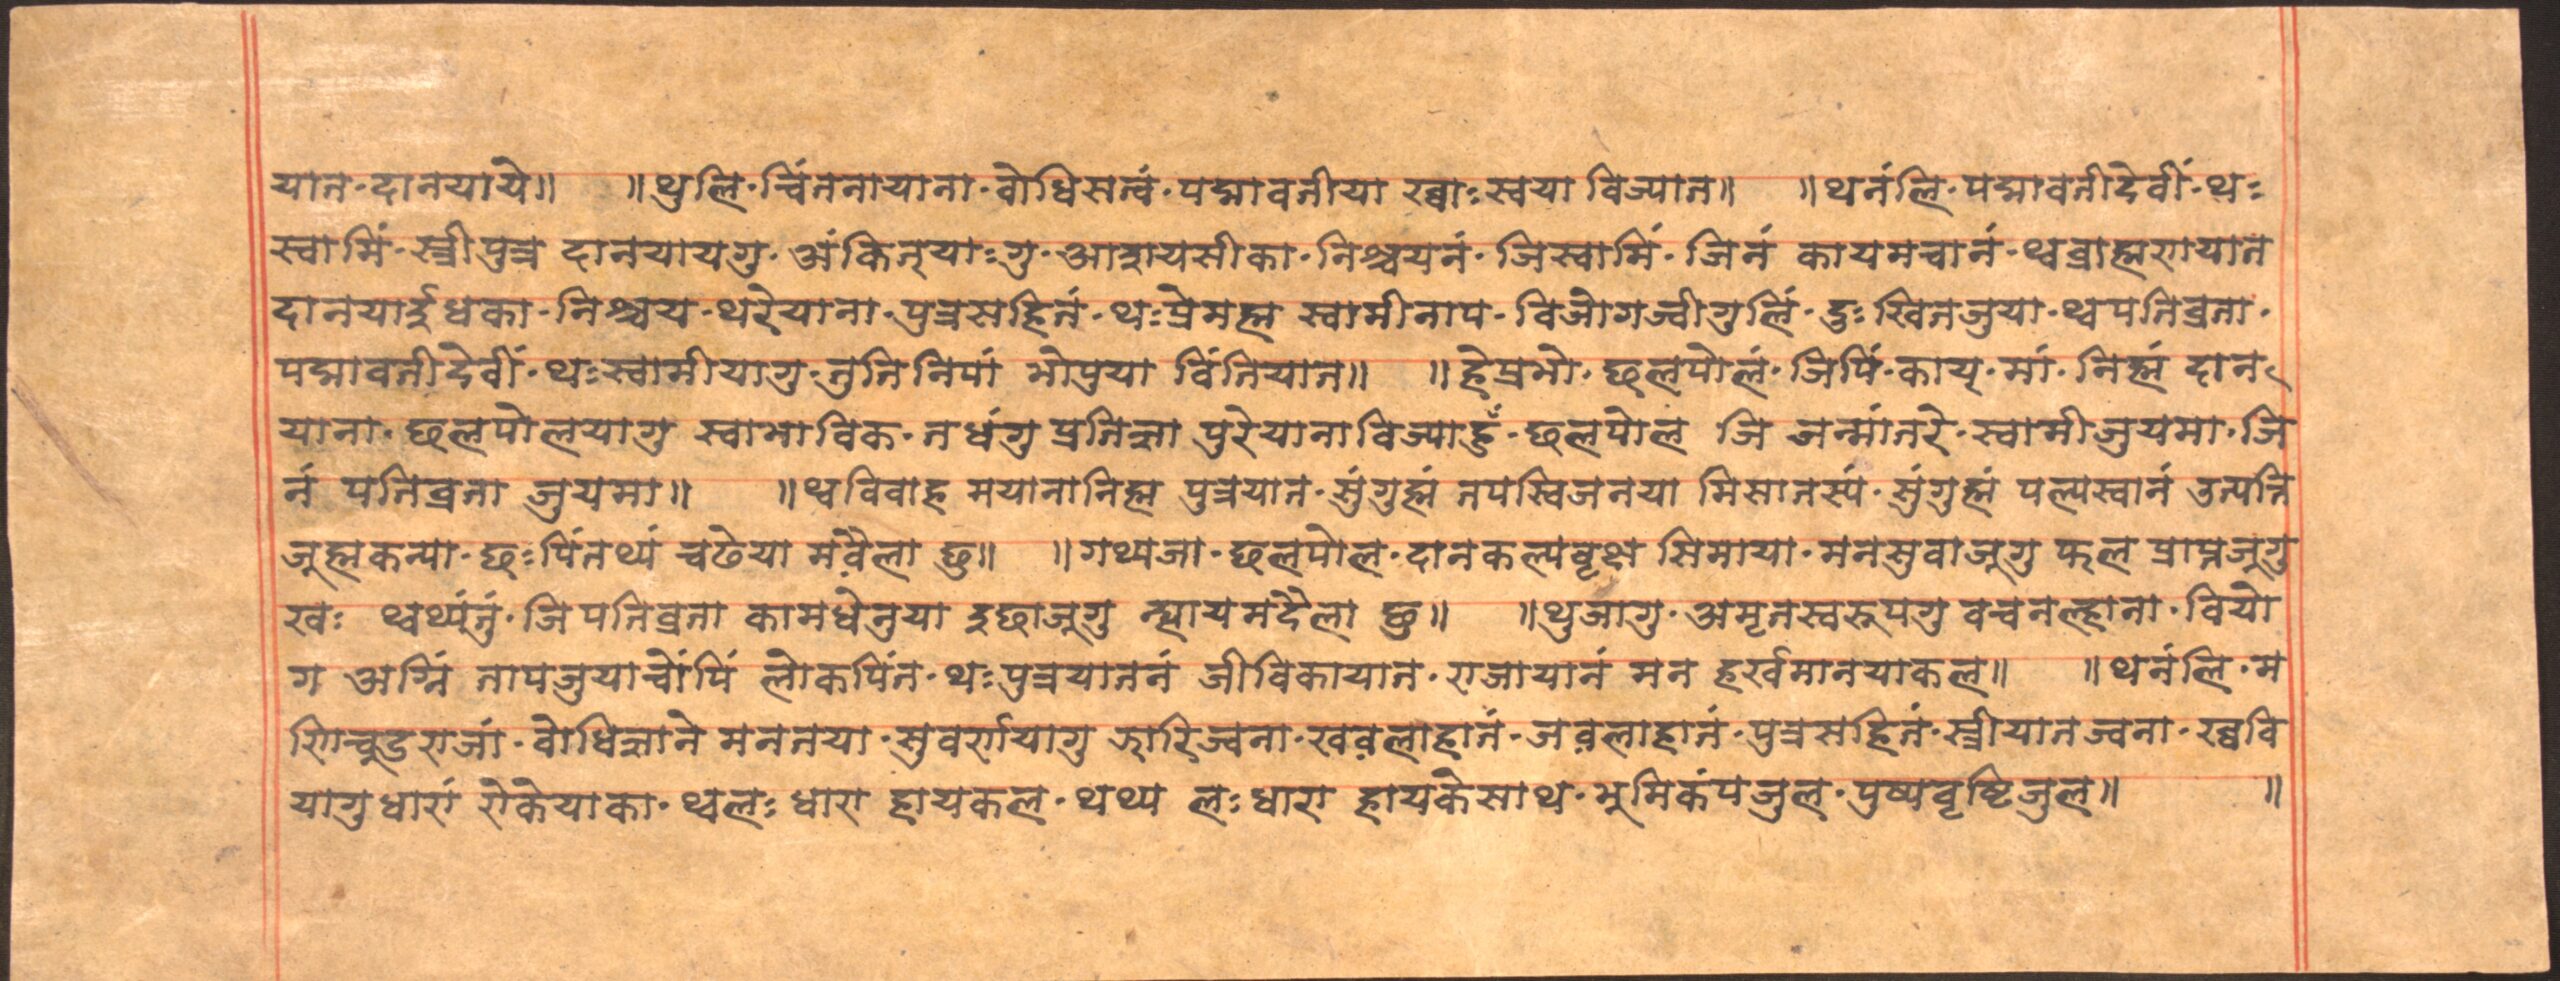 यात·दानयाये॥ ॥थुलि·चिंतनायाना·वोधिसत्वं·पद्मावतीया ख्वाः स्वया विज्यात॥ ॥थनंलि·पद्मावतीदेवीं·थः
स्वामिं·स्त्रीपुत्र दानयायगु·अंकित्याःगु·आशयसीका·निश्चयनं·जिस्वामिं·जितं कायमचानं·थ्वब्राह्मणयात
दानयाईधका·निश्चय·थरेयाना·पुत्रसहितं·थःप्रेमह्म स्वामीनाप·विजोगज्वीगुलिं·दुःखितजुया·थ्वपतिब्रता·
पद्मावतीदेवीं·थःस्वामीयागु·तुतिनिपां भोपुया विंतियात॥ ॥हेप्रभो·छलपोलं·जिपिं·काय्·मां·निह्मं दान
याना·छलपोलयागु स्वाभाविक·तधंगु प्रतिज्ञा पुरेयानाविज्याहुँ·छलपोल जि जन्मांतरे·स्वामीजुयमा·जि
नं पतिब्रता जुयमा॥ ॥थ्वविवाह मयानानिह्म पुत्रयात·सुंगुह्मं तपस्विजनया मिसातस्यं·सुंगुह्मं पल्यस्वानं उत्पत्ति
जूह्मकन्या·छःपिंतथ्यं चढेया मवैला छु॥ ॥गथ्यजा·छलपोल·दानकल्पबृक्ष सिमाया·मनसुवाजूगु फल प्राप्तजूगु
खः थ्वथ्यंतुं·जिपतिब्रता कामधेनुया इछाजूगु न्ह्यायमदैला छु॥ ॥थुजागु·अमृतस्वरूपगु वचनल्हाना·वियो
ग अग्निं तापजुयाचोंपिं लोकपिंत·थःपुत्रयातनं जीविकायात·राजायानं मन हर्खमानयाकल॥ ॥थनंलि·म
णिचूडराजां·वोधिज्ञाने मनतया·सुवर्णयागु झारिज्वना·खवलाहातं·जवलाहातं·पुत्रसहितं·स्त्रीयातज्वना·ख्ववि
यागुधारां रोकेयाका·थ्वलः धारा हायकल·थथ्य लः धारा हायकेसाथ·भूमिकंपजुल·पुष्पबृष्टिजुल॥ ॥